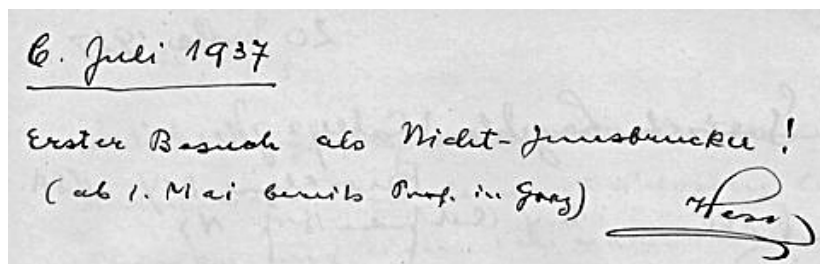 6. Juli 1937
Erster Besuch als Nicht-Innsbrucker!
(ab 1. Mai bereits Prof. in Graz) Hess